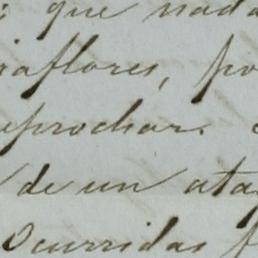 que nada
raflores, po
eprochar.
de un ata
Ocurridas f